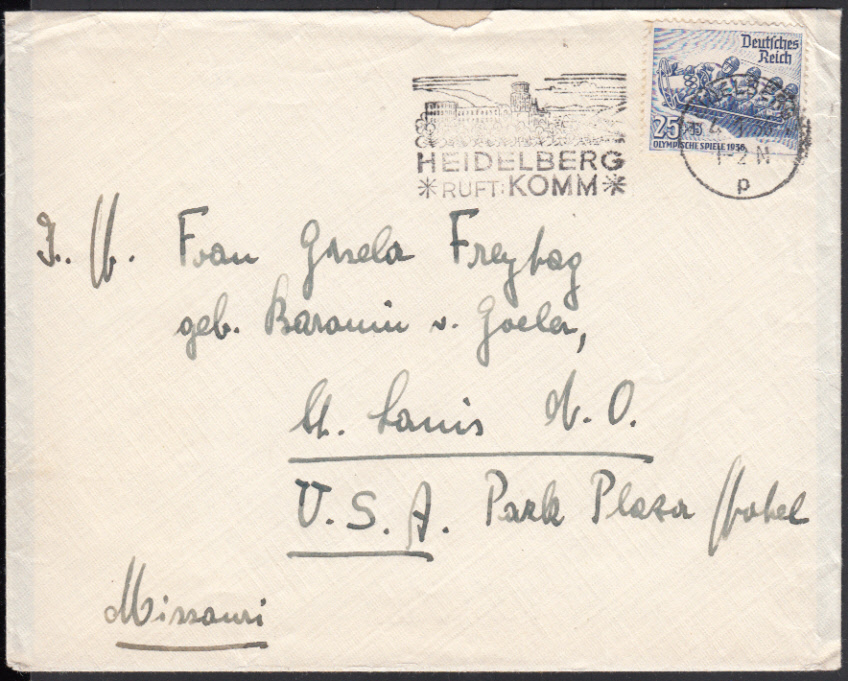 HEIDELBERG
RUFT: KOMM
Deutsches
Reich
25
OLYMPISCHE SPIELE 1936
HEIDELBERG
1-2 N
p
I. H. Frau Gisela Freytag
geb. Baronin v. Goeler,
St. Louis M.O.
U.S.A. Park Plaza Hotel
Missouri